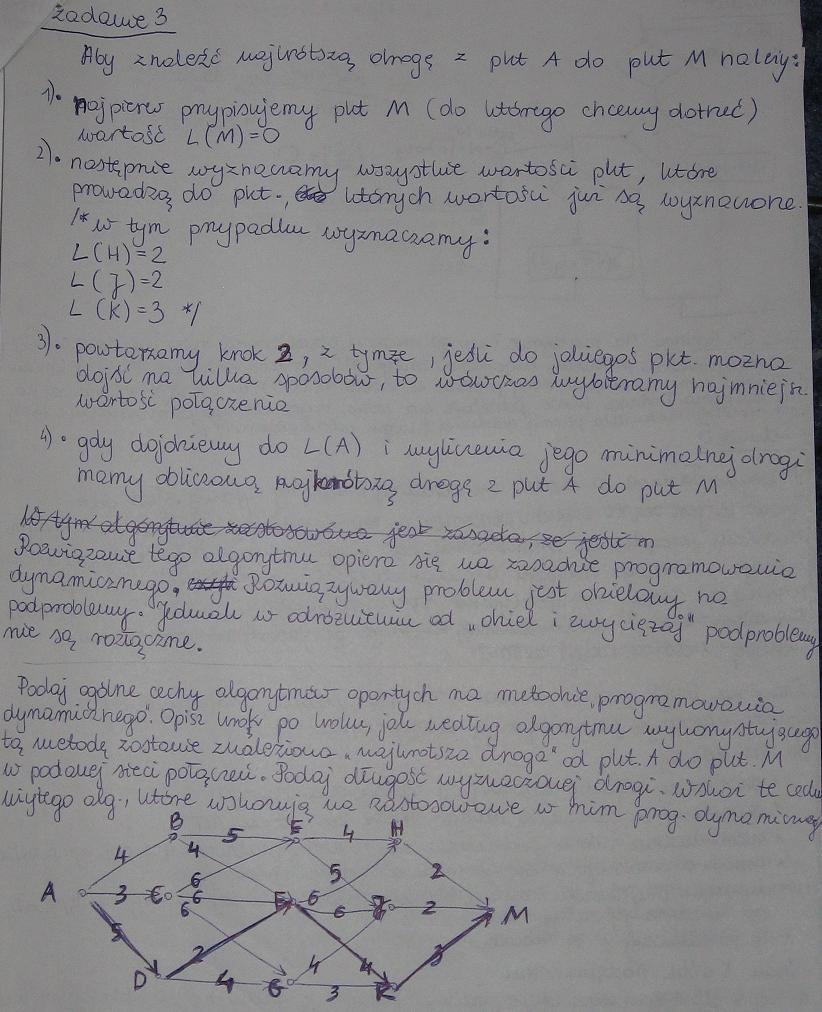 Zadanie 3
Aby znaleźć najkrótszą drogę z pkt A do pkt M należy:
1). najpierw przypisujemy pkt M (do którego chcemy dotrzeć)
wartość L(M)=0
2). następnie wyznaczamy wszystkie wartości pkt, które
prowadzą do pkt., których wartości już są wyznaczone.
/* w tym przypadku wyznaczamy:
L(H)=2
L(J)=2
L(K)=3 */
3). powtarzamy krok 2, z tymże, jeśli do jakiegoś pkt. można
dojść na kilka sposobów, to wówczas wybieramy najmniejsz.
wartość połączenia
4). gdy dojdziemy do L(A) i wyliczenia jego minimalnej drogi
mamy obliczoną najkrótszą drogę z pkt A do pkt M
W tym algorytmie zastosowana jest zasada, że jeśli m
Rozwiązanie tego algorytmu opiera się na zasadzie programowania
dynamicznego. Rozwiązywany problem jest dzielony na
podproblemy. Jednak w odróżnieniu od „dziel i zwyciężaj" podproblemy
nie są rozłączne.
Podaj ogólne cechy algorytmów opartych na metodzie „programowania
dynamicznego". Opisz krok po kroku, jak według algorytmu wykorzystującego
tą metodę zostanie znaleziona „najkrótsza droga" od pkt. A do pkt. M
w podanej sieci połączeń. Podaj długość wyznaczonej drogi. Wskaż te cechy
użytego alg., które wskazują na zastosowanie w nim prog. dynamicznego
B 5 E 4 H
4 4 5 2
A 3 C 6 6 6 F 6 6 J 2 M
5 2 4 4 3
D 4 G 3 K